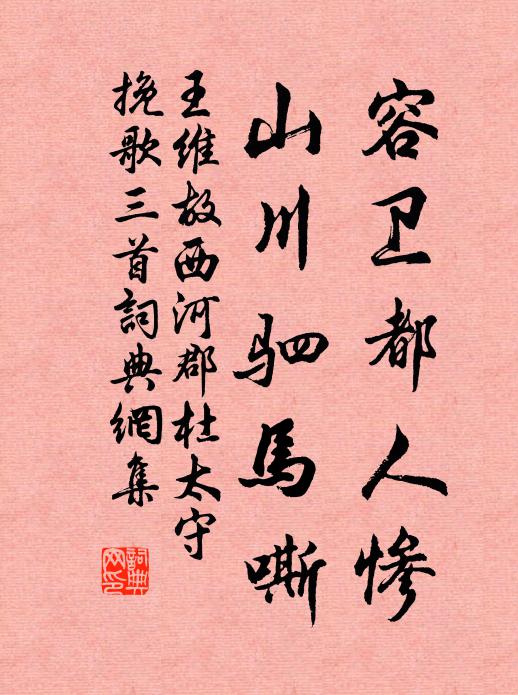 容卫都人惨
山川驷馬嘶
王维故西河郡杜太守
挽歌三首詞典網集
詞典网印